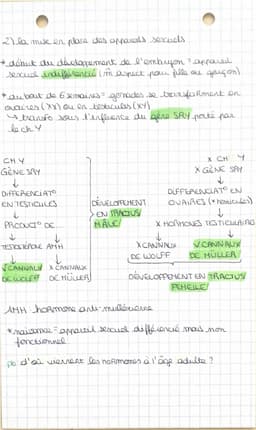 2) la mise en place des appareils sexuels
* début du développement de l'embryon = appareil
sexuel indifférencié (m̂ aspect pour fille ou garçon)
* au bout de 6 semaines = gonades se transforment en
ovaires (XX) ou en testicules (XY)
↳ transfo sous l'influence du gène SRY porté par
le ch Y
CH Y
GÈNE SRY
↓
DIFFÉRENCIAT° EN TESTICULES
↓
PRODUCT° DE
↓ ↓
TESTOSTÉRONE AMH
↓ ↓
✓ CANNAUX DE WOLFF
X CANNAUX DE MÜLLER
DÉVELOPPEMENT
EN TRACTUS
MÂLE
X CH Y
X GÈNE SRY
↓
DIFFÉRENCIAT° EN
OVAIRES (X testicules)
↓
X HORMONES TESTICULAIRES
↓ ↓
X CANNAUX DE WOLFF
✓ CANNAUX DE MÜLLER
DÉVELOPPEMENT EN TRACTUS
FEMELLE
AMH hormone anti-mullérienne
* naissance = appareil sexuel différencié mais non
fonctionnel
pb d'où viennent les hormones à l'âge adulte ?